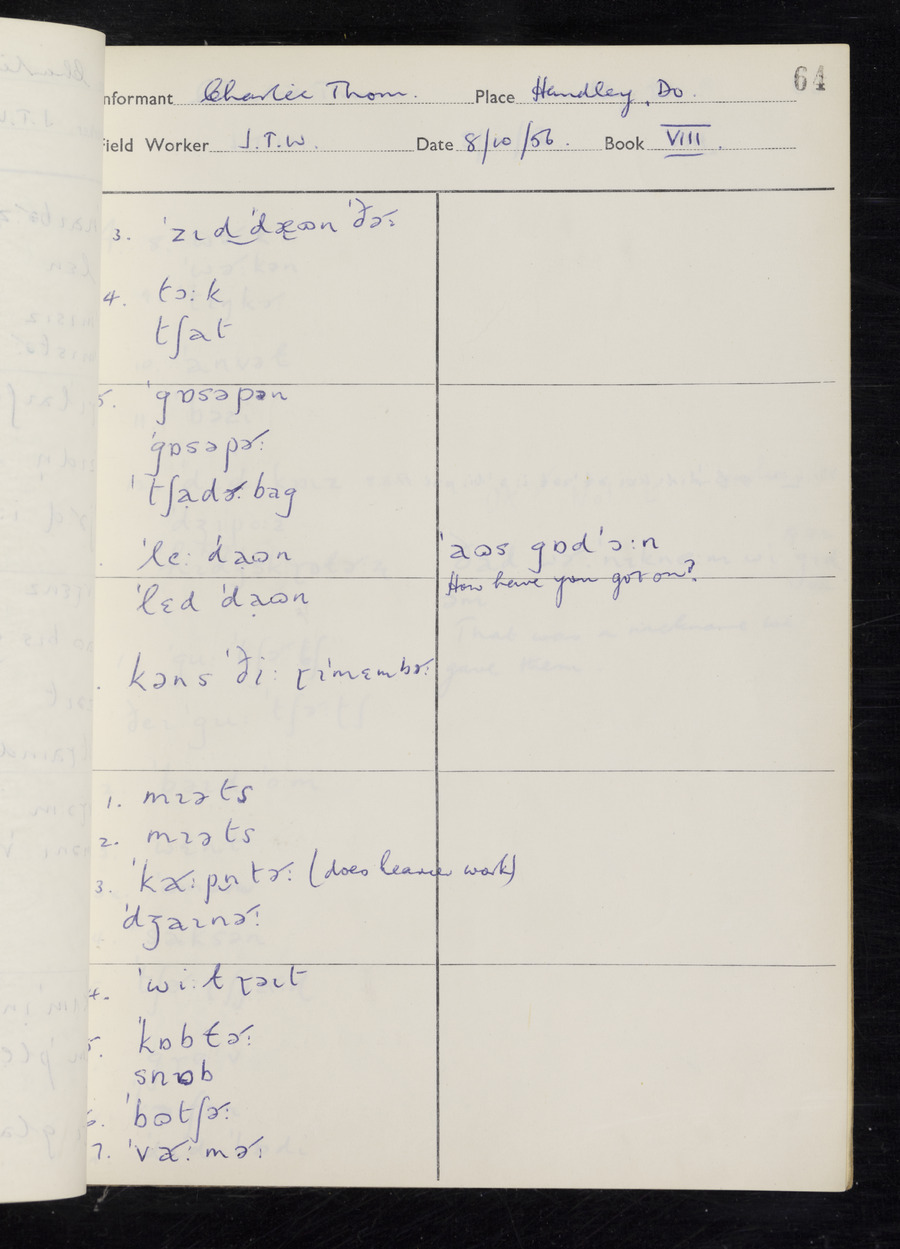 64
nformant Charlie Thom. Place Handley, Do.
ield Worker J.T.W. Date 8/10/56. Book VIII.
3. ˈzɪd ˈdæʊn ˈðɚː
4. tɔːk
tʃat
5. ˈɡɒsəpən
ˈɡɒsəpɚː
ˈtʃadɚː baɡ
ˈleː ˈdaʊn
ˈaʊs ɡɒd ˈɔːn
How have you got on?
ˈlɛd ˈdaʊn
kəns ˈðiː ɽɪˈmɛmbɚː
1. mɪəts
2. mɪəts
3. ˈkɑ˞ːpn̩tɚː (does work)
ˈdʒaɪnɚː
4. ˈwiːlɽəɪt
5. ˈkɒblɚː
snɒb
6. ˈbʊtʃɚː
7. ˈvɑ˞ːmɚː